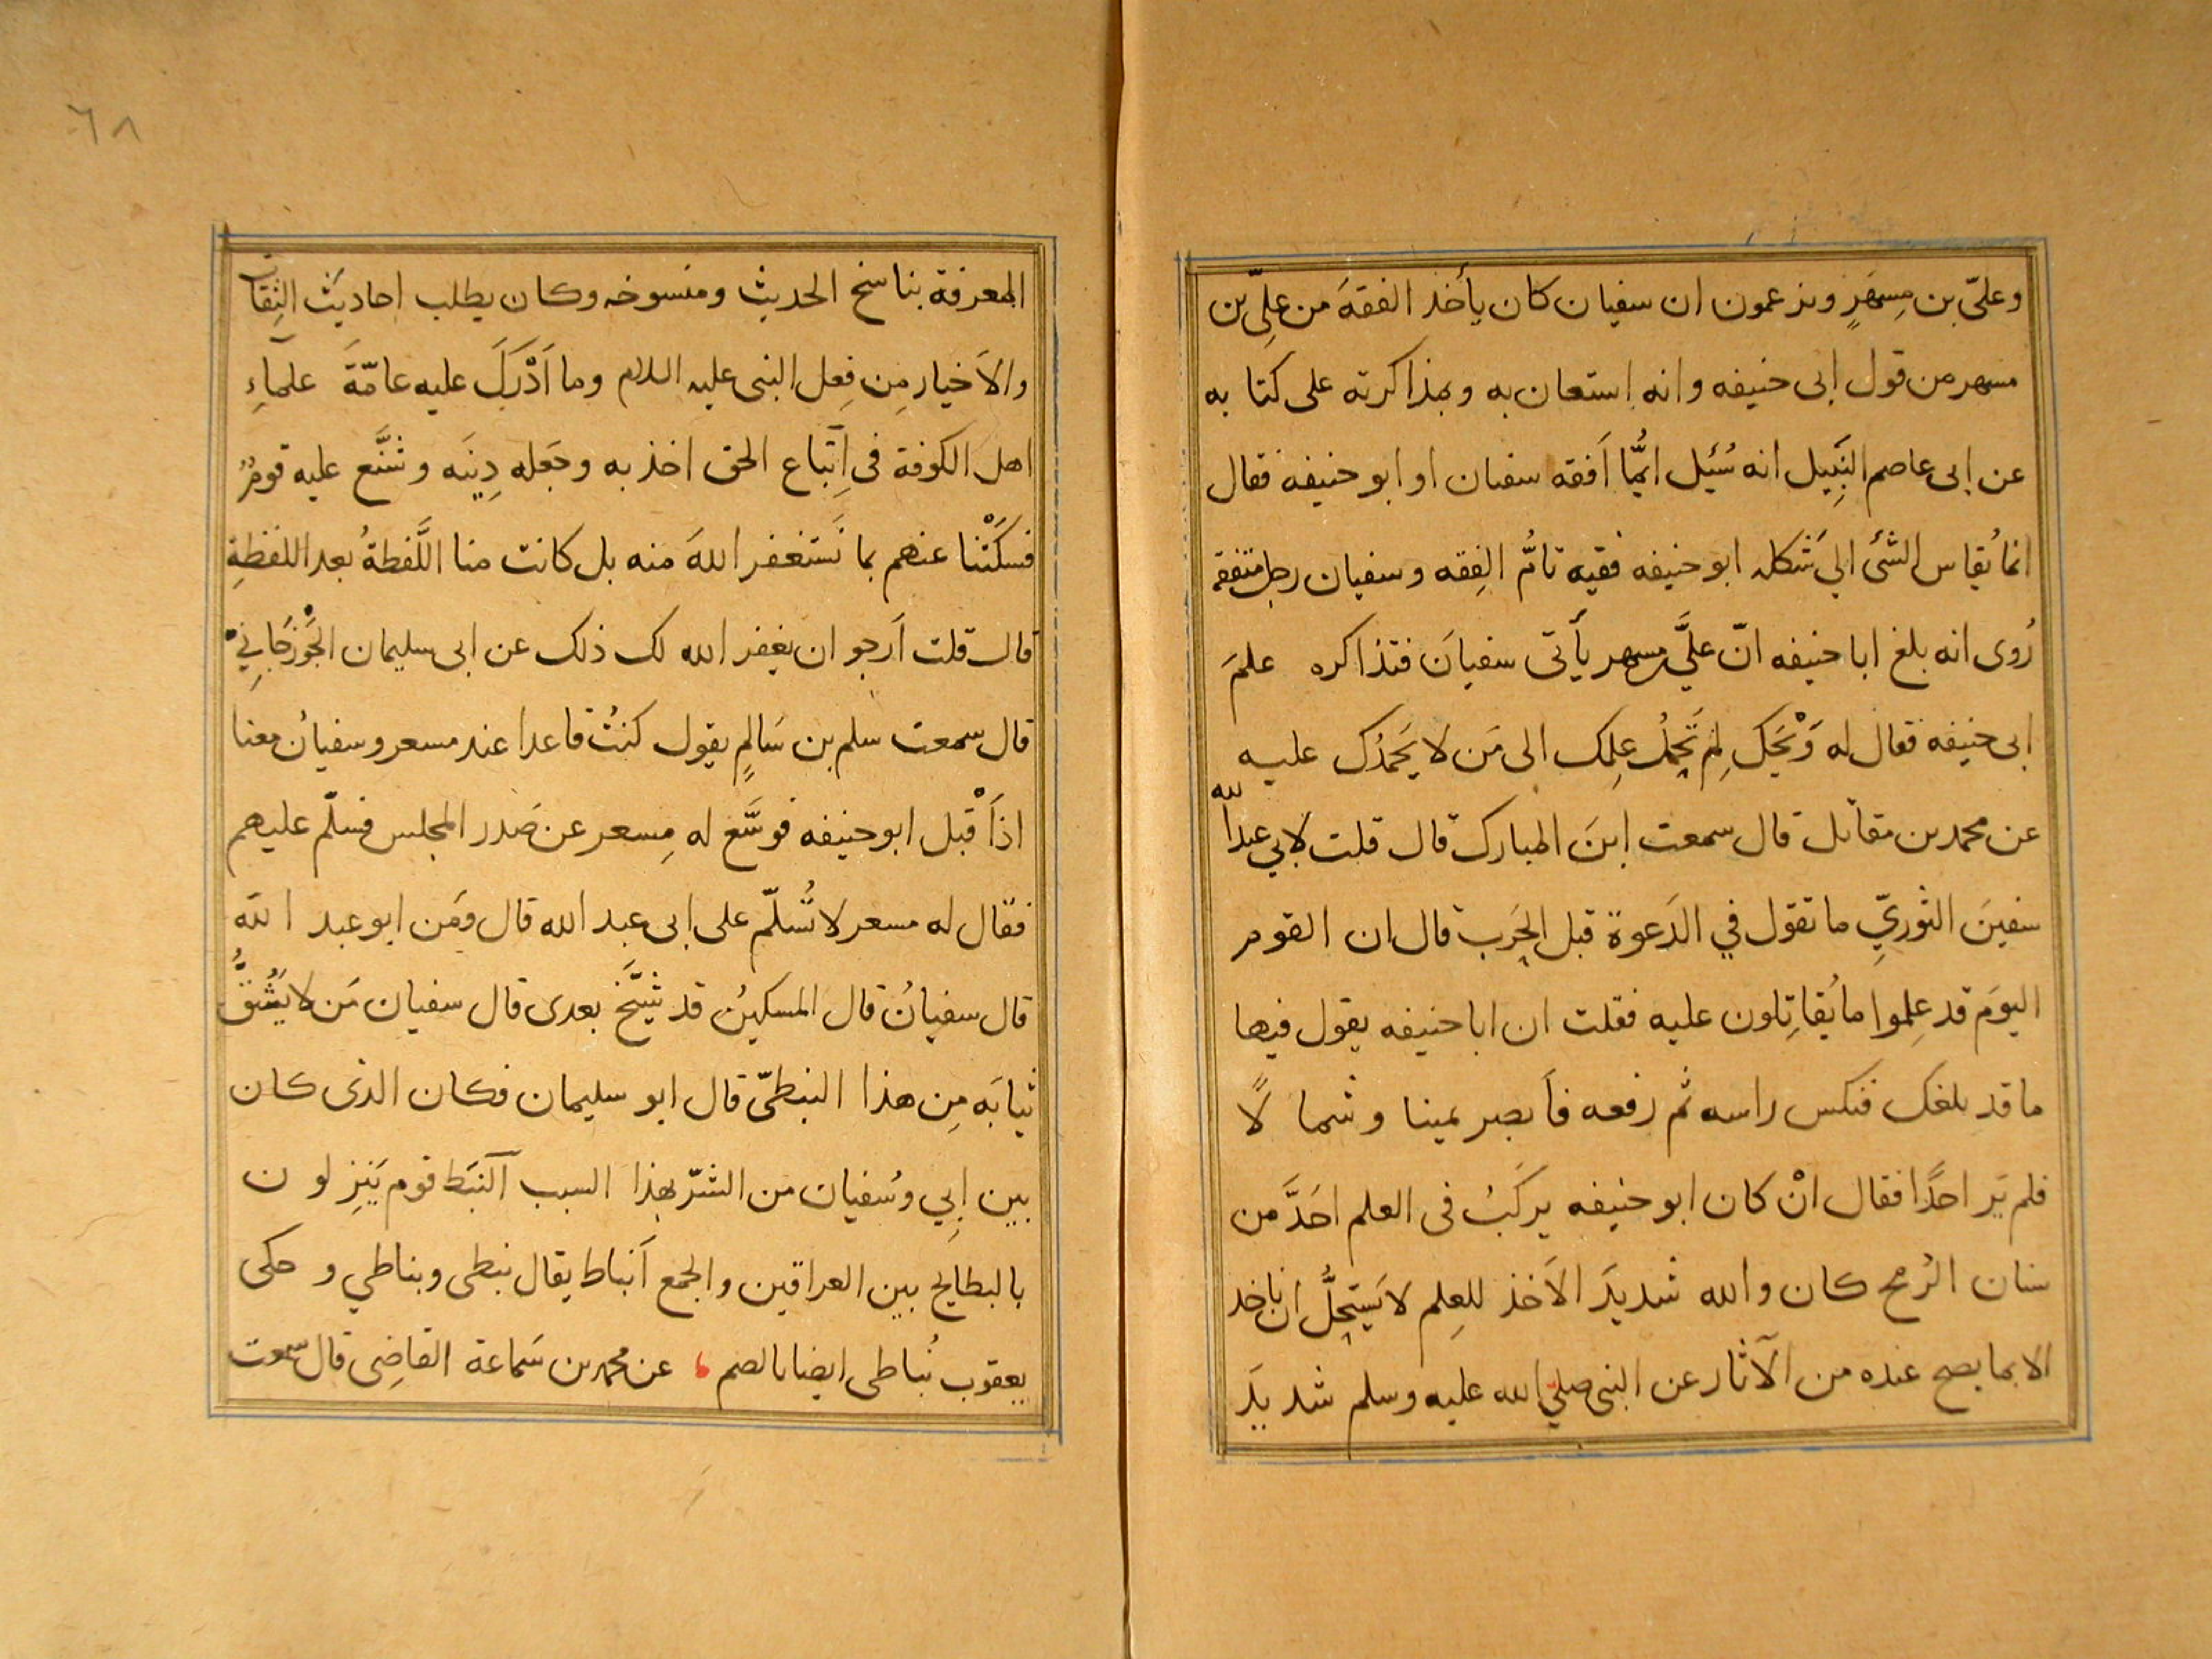 وعليّ بن مِسهَرٍ ويزعمون ان سفيان كان يأخذ الفقهَ من عليّ بن
مسهر من قول ابى حنيفه وانه استعان به وبمذاكرته على كتابه
عن ابى عاصم النَبِيل انه سُئِل ايُّما اَفقه سفيان او ابو حنيفه فقال
انما يُقاس الشئ الي شَكله ابو حنيفه فقيه تامُّ الفِقه وسفيان رجل متفقه
رُوى انه بلغ ابا حنيفه انّ عليَّ بن مسهر يأتى سفيانَ فتذاكره علمَ
ابى حنيفه فقال له وَيْحَكَ لِمَ تَحمِلُ عِلمك الى مَن لا يَحمَدُك عليه
عن محمد بن مقاتل قال سمعت ابنَ المبارك قال قلت لابي عبد الله
سفينَ الثوريِّ ما تقول في الدَعوة قبل الحَرب قال ان القوم
اليومَ قد عِلموا ما يُقاتِلون عليه فقلت ان ابا حنيفه يقول فيها
ما قد بلغك فنكس راسه ثم رفعه فاَبصر يمينا وشمالًا
فلم يَر احدًا فقال انْ كان ابو حنيفه يركَبُ فى العلم احَدَّ من
سنان الرُمح كان والله شديدَ الاَخذ للعِلم لا يَستحِلُّ ان ياخذ
الا بما يصح عنده من الآثار عن النبى صليّ الله عليه وسلم شديدَ
٦٨
المعرفة بناسخ الحديث ومنسوخه وكان يطلب احاديثَ الثِقات
والاَخيار مِن فِعل النبى عليه السلام وما اَدْرَكَ عليه عامّةَ علماءِ
اهل الكوفة فى اِتّباع الحق اخذ به وجَعله دِينَه وشَنَّع عليه قومٌ
فسكَتْنا عنهم بما نَستغفر اللهَ منه بل كانت منا اللَّفظةُ بعد اللفظةِ
قال قلت اَرجو ان يغفر الله لك ذلك عن ابى سليمان الجَوْزجَانِي
قال سمعت سلم بن سَالمٍ يقول كنتُ قاعدا عند مسعر وسفيانُ معنا
اذ اَقْبل ابو حنيفه فوسَّع له مِسعر عن صَدر المجلس فسلّم عليهم
فقال له مسعر لا تُسلّم على ابى عبد الله قال ومَن ابو عبد الله
قال سفيانُ قال المسكينُ قد شَيَّخَ بعدى قال سفيان مَن لا يَشُقُّ
ثيابَه مِن هذا النبطىّ قال ابو سليمان فكان الذى كان
بين اِبي وسُفيان من الشرّ بهذا السبب النَبَط قوم يَنِزلون
بالبطايح بين العراقين والجمع اَنباط يقال نبطى ونباطي وحكى
يعقوب نُباطى ايضا بالصم ، عن محمد بن سَماعة القاضِى قال سمعت